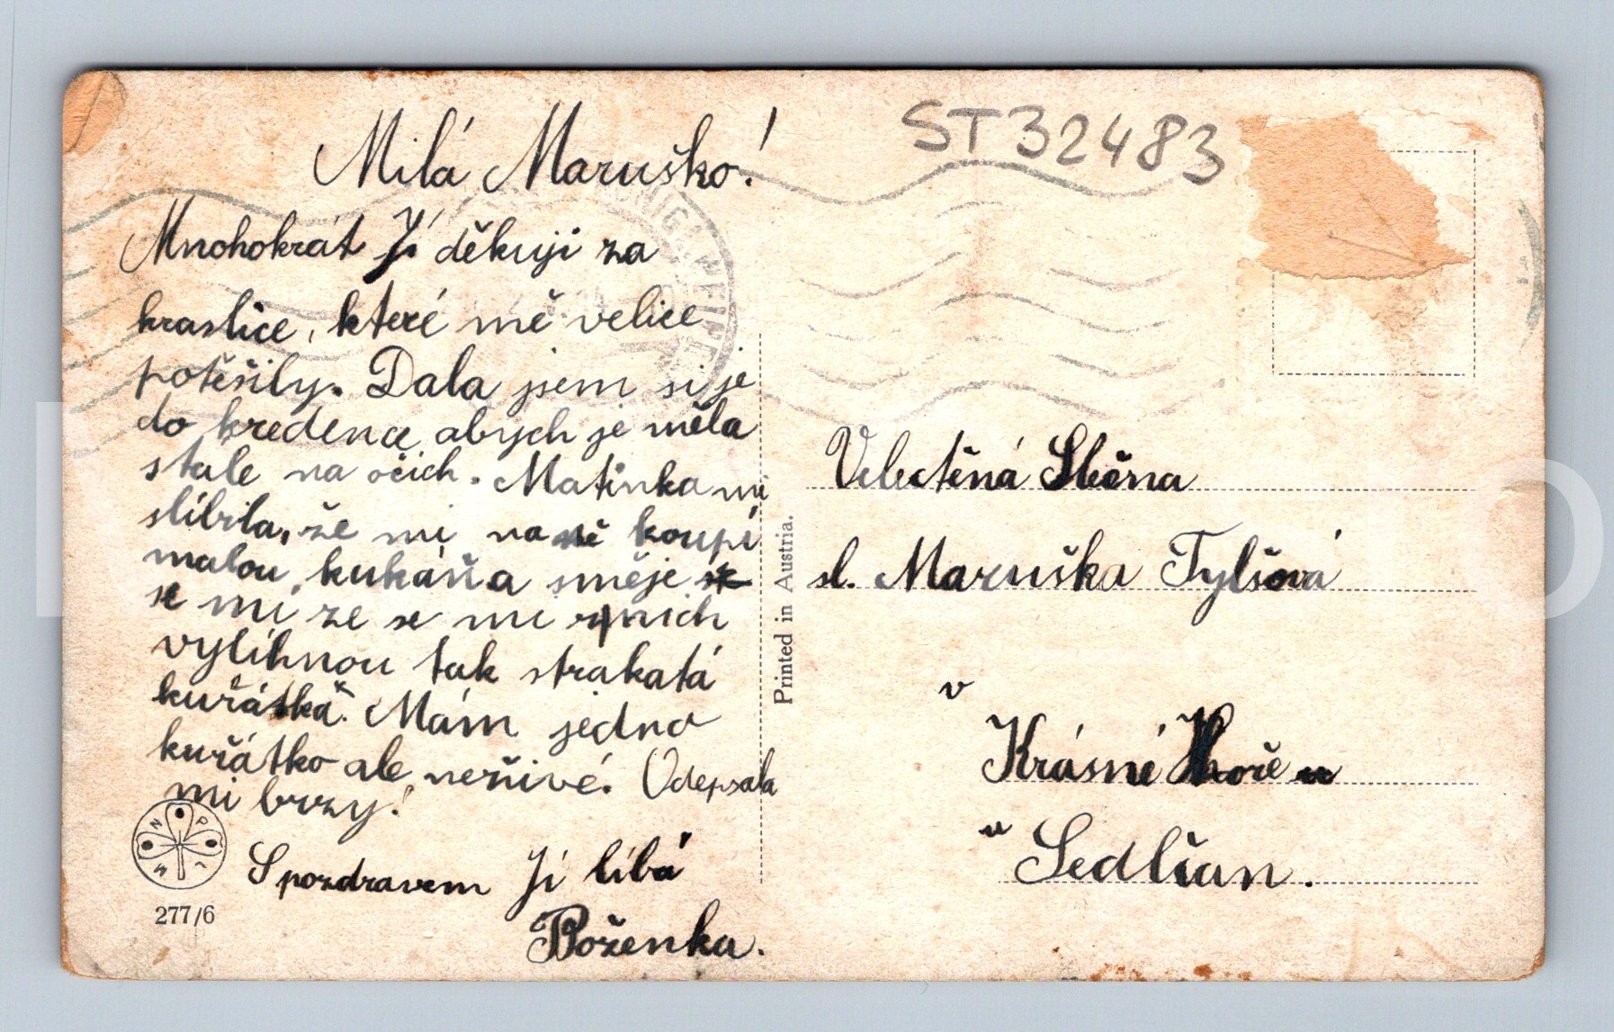 ST32483
Milá Maruško!
Mnohokrát Jí děkuji za
kraslice, které mě velice
potěšily. Dala jsem si je
do kredence abych je měla
stále na očích. Matinka mi
slíbila, že mi na ně koupí
malou kukaňa směje
se mi ze se mi z nich
vylíhnou tak strakatá
kuřátka. Mám jedno
kuřátko ale neživé. Odepsala
mi brzy!
S pozdravem Jí líbá
Boženka.
N P L M
277/6
Printed in Austria.
Velectěná Slečna
sl. Maruška Tylšová
v
Krásné Hoře u
u Sedlčan.